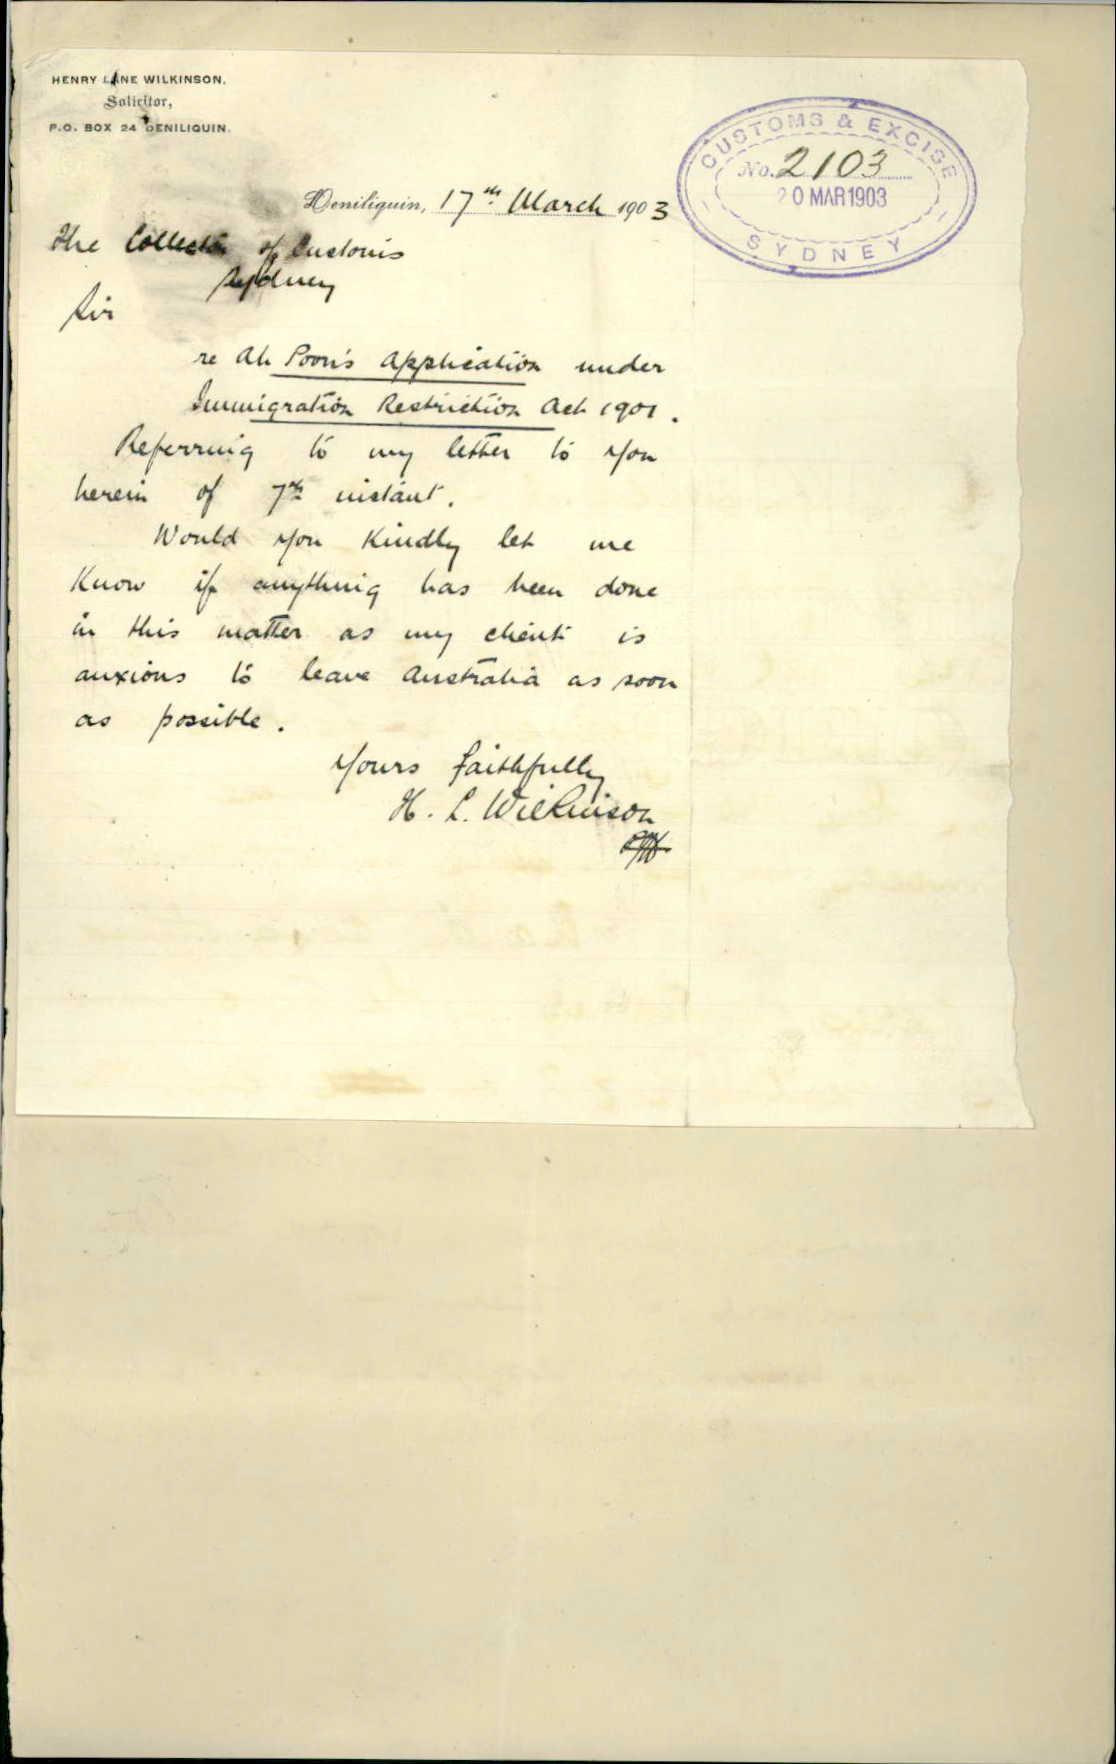 HENRY LANE WILKINSON,
Solicitor,
P.O. BOX 24 DENILIQUIN.
CUSTOMS & EXCISE
No. 2103
20 MAR 1903
SYDNEY
Deniliquin, 17th March 1903
The Collector of Customs
Sydney
Sir
re Ah Poon's application under
Immigration Restriction Act 1901.
Referring to my letter to you
herein of 7th instant.
Would you kindly let me
know if anything has been done
in this matter as my client is
anxious to leave Australia as soon
as possible.
Yours faithfully
H. L. Wilkinson